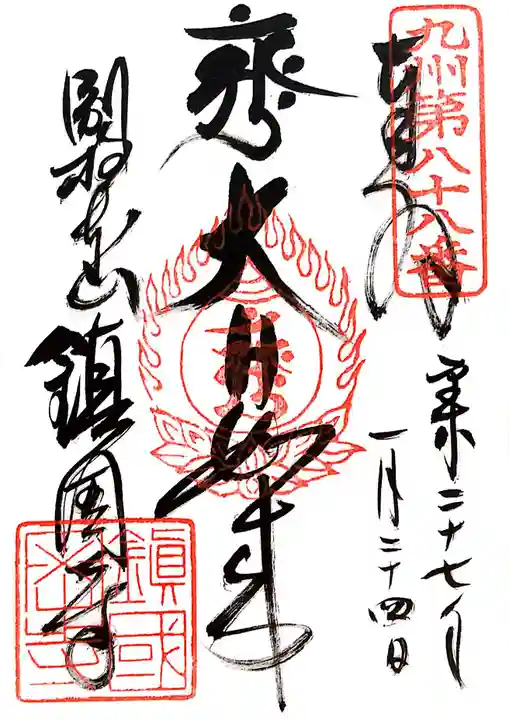 九州第八十八番
奉拝
平成二十七年
一月二十四日
大日如来
屏風山
鎮国寺
鎮國